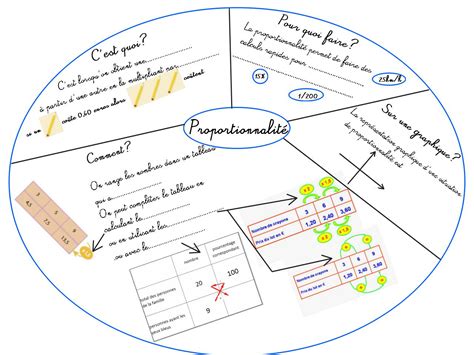 C'est quoi?
C'est lorsqu'on obtient une............
à partir d'une autre en la multipliant par............
si un coûte 0,60 euros alors coûtent
............
Pour quoi faire?
La proportionnalité permet de faire des
calculs rapides pour............
15%
1/200
25km/h
Proportionnalité
Sur une graphique?
La représentation graphique d'une situation
de proportionnalité est
............
Comment?
On range les nombres dans un tableau
qui a............
On peut compléter le tableau en
calculant le............
ou en utilisant les............
ou avec le............
3 4,5
5 7,5
9 13,5
nombre pourcentage correspondant
total des personnes de la famille 20 100
personnes ayant les yeux bleus 9
x 2 x 1,5
Nombre de crayons 3 6 9
Prix du lot en € 1,20 2,40 3,60
x 2 x 1,5
Nombre de crayons 3 6 9
Prix du lot en € 1,20 2,40 3,60